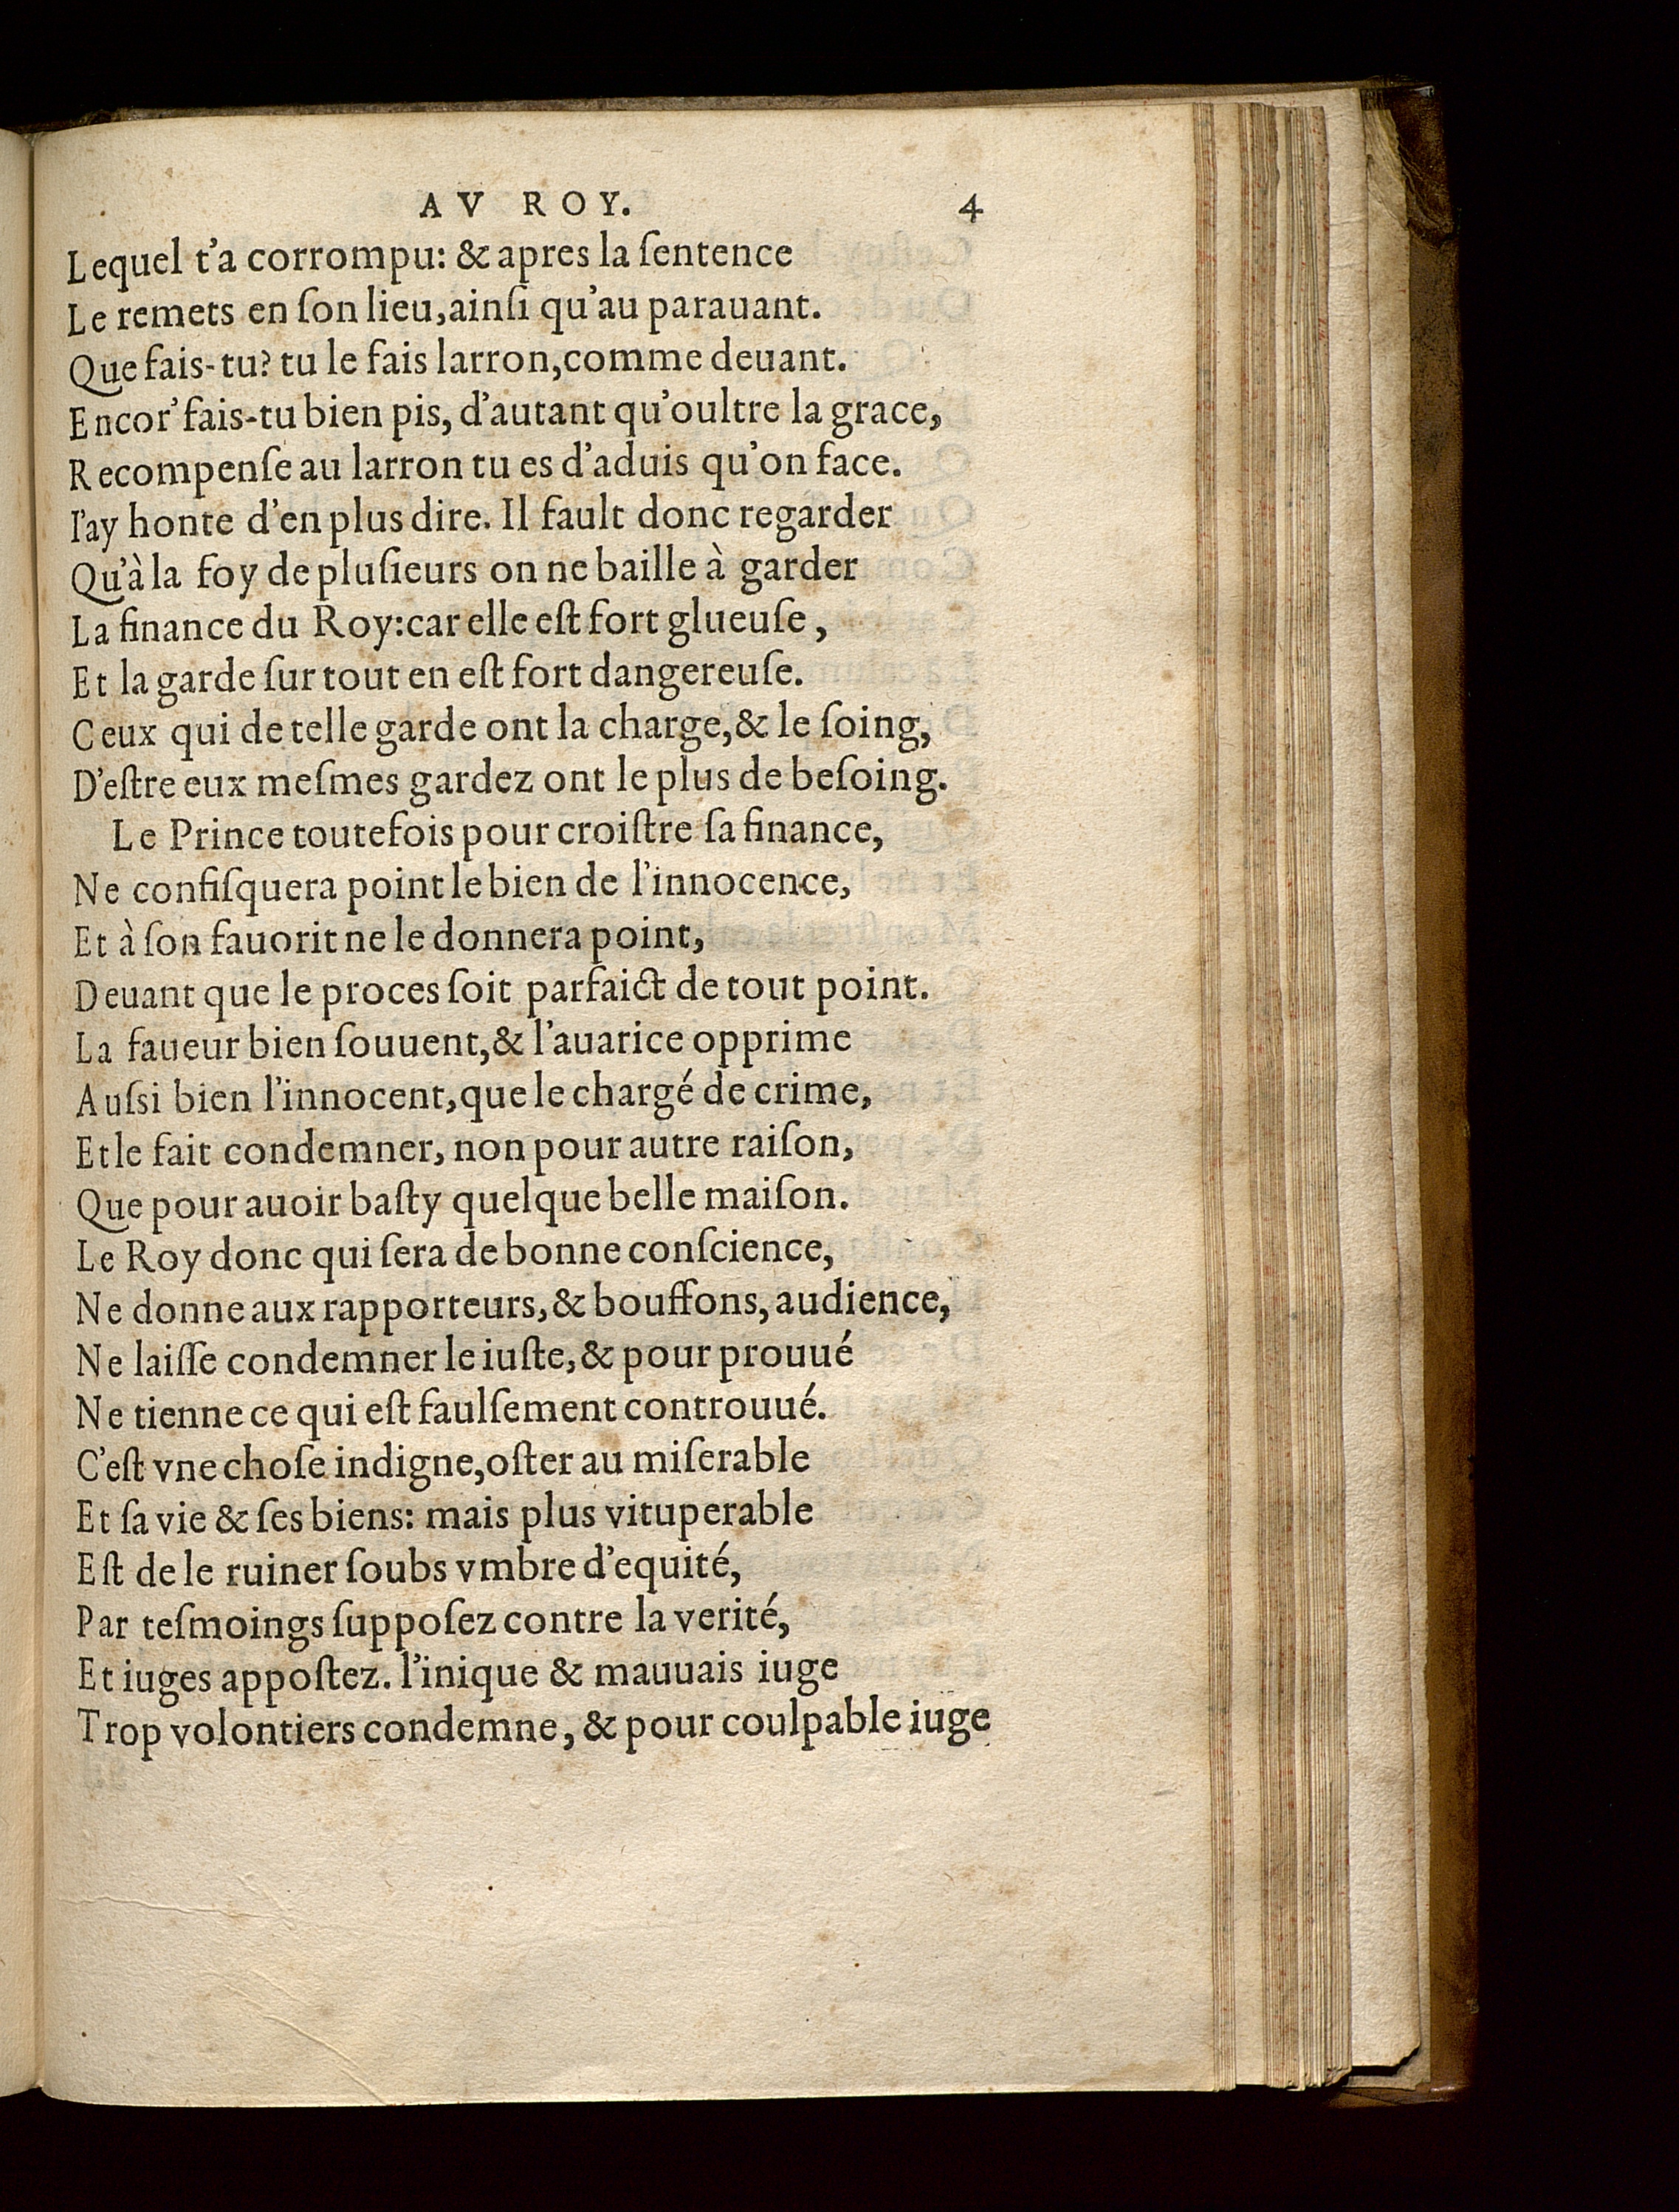 AV ROY. 4
Lequel t'a corrompu: & apres la ſentence
Le remets en ſon lieu, ainſi qu'au parauant.
Que fais-tu? tu le fais larron, comme deuant.
Encor' fais-tu bien pis, d'autant qu'oultre la grace,
Recompenſe au larron tu es d'aduis qu'on face.
I'ay honte d'en plus dire. Il fault donc regarder
Qu'à la foy de pluſieurs on ne baille à garder
La finance du Roy: car elle eſt fort glueuſe,
Et la garde ſur tout en eſt fort dangereuſe.
Ceux qui de telle garde ont la charge, & le ſoing,
D'eſtre eux meſmes gardez ont le plus de beſoing.
Le Prince toutefois pour croiſtre ſa finance,
Ne confiſquera point le bien de l'innocence,
Et à ſon fauorit ne le donnera point,
Deuant que le proces ſoit parfaict de tout point.
La faueur bien ſouuent, & l'auarice opprime
Auſsi bien l'innocent, que le chargé de crime,
Et le fait condemner, non pour autre raiſon,
Que pour auoir baſty quelque belle maiſon.
Le Roy donc qui ſera de bonne conſcience,
Ne donne aux rapporteurs, & bouffons, audience,
Ne laiſſe condemner le iuſte, & pour prouué
Ne tienne ce qui eſt faulſement controuué.
C'eſt vne choſe indigne, oſter au miſerable
Et ſa vie & ſes biens: mais plus vituperable
Eſt de le ruiner ſoubs vmbre d'equité,
Par teſmoings ſuppoſez contre la verité,
Et iuges appoſtez. l'inique & mauuais iuge
Trop volontiers condemne, & pour coulpable iuge